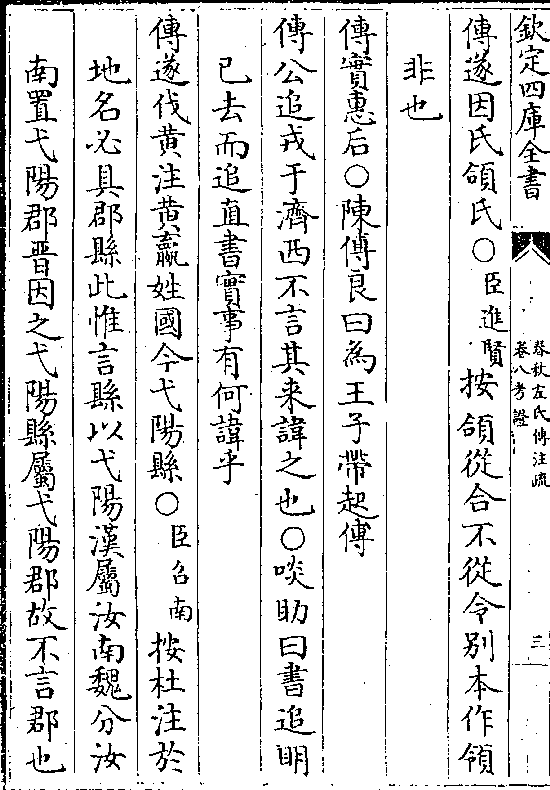 欽定四庫全書
春秋左氏傳注疏
卷八考證
三
傳遂因氏頜氏○臣進賢按頜從合不從令別本作領
非也
傳實惠后○陳傅良曰為王子帶起傳
傳公追戎于濟西不言其来諱之也○啖助曰書追明
已去而追直書實事有何諱乎
傳遂伐黄注黄嬴姓國今弋陽縣○臣召南按杜注於
地名必具郡縣此惟言縣以弋陽漢屬汝南魏分汝
南置弋陽郡晋因之弋陽縣屬弋陽郡故不言郡也